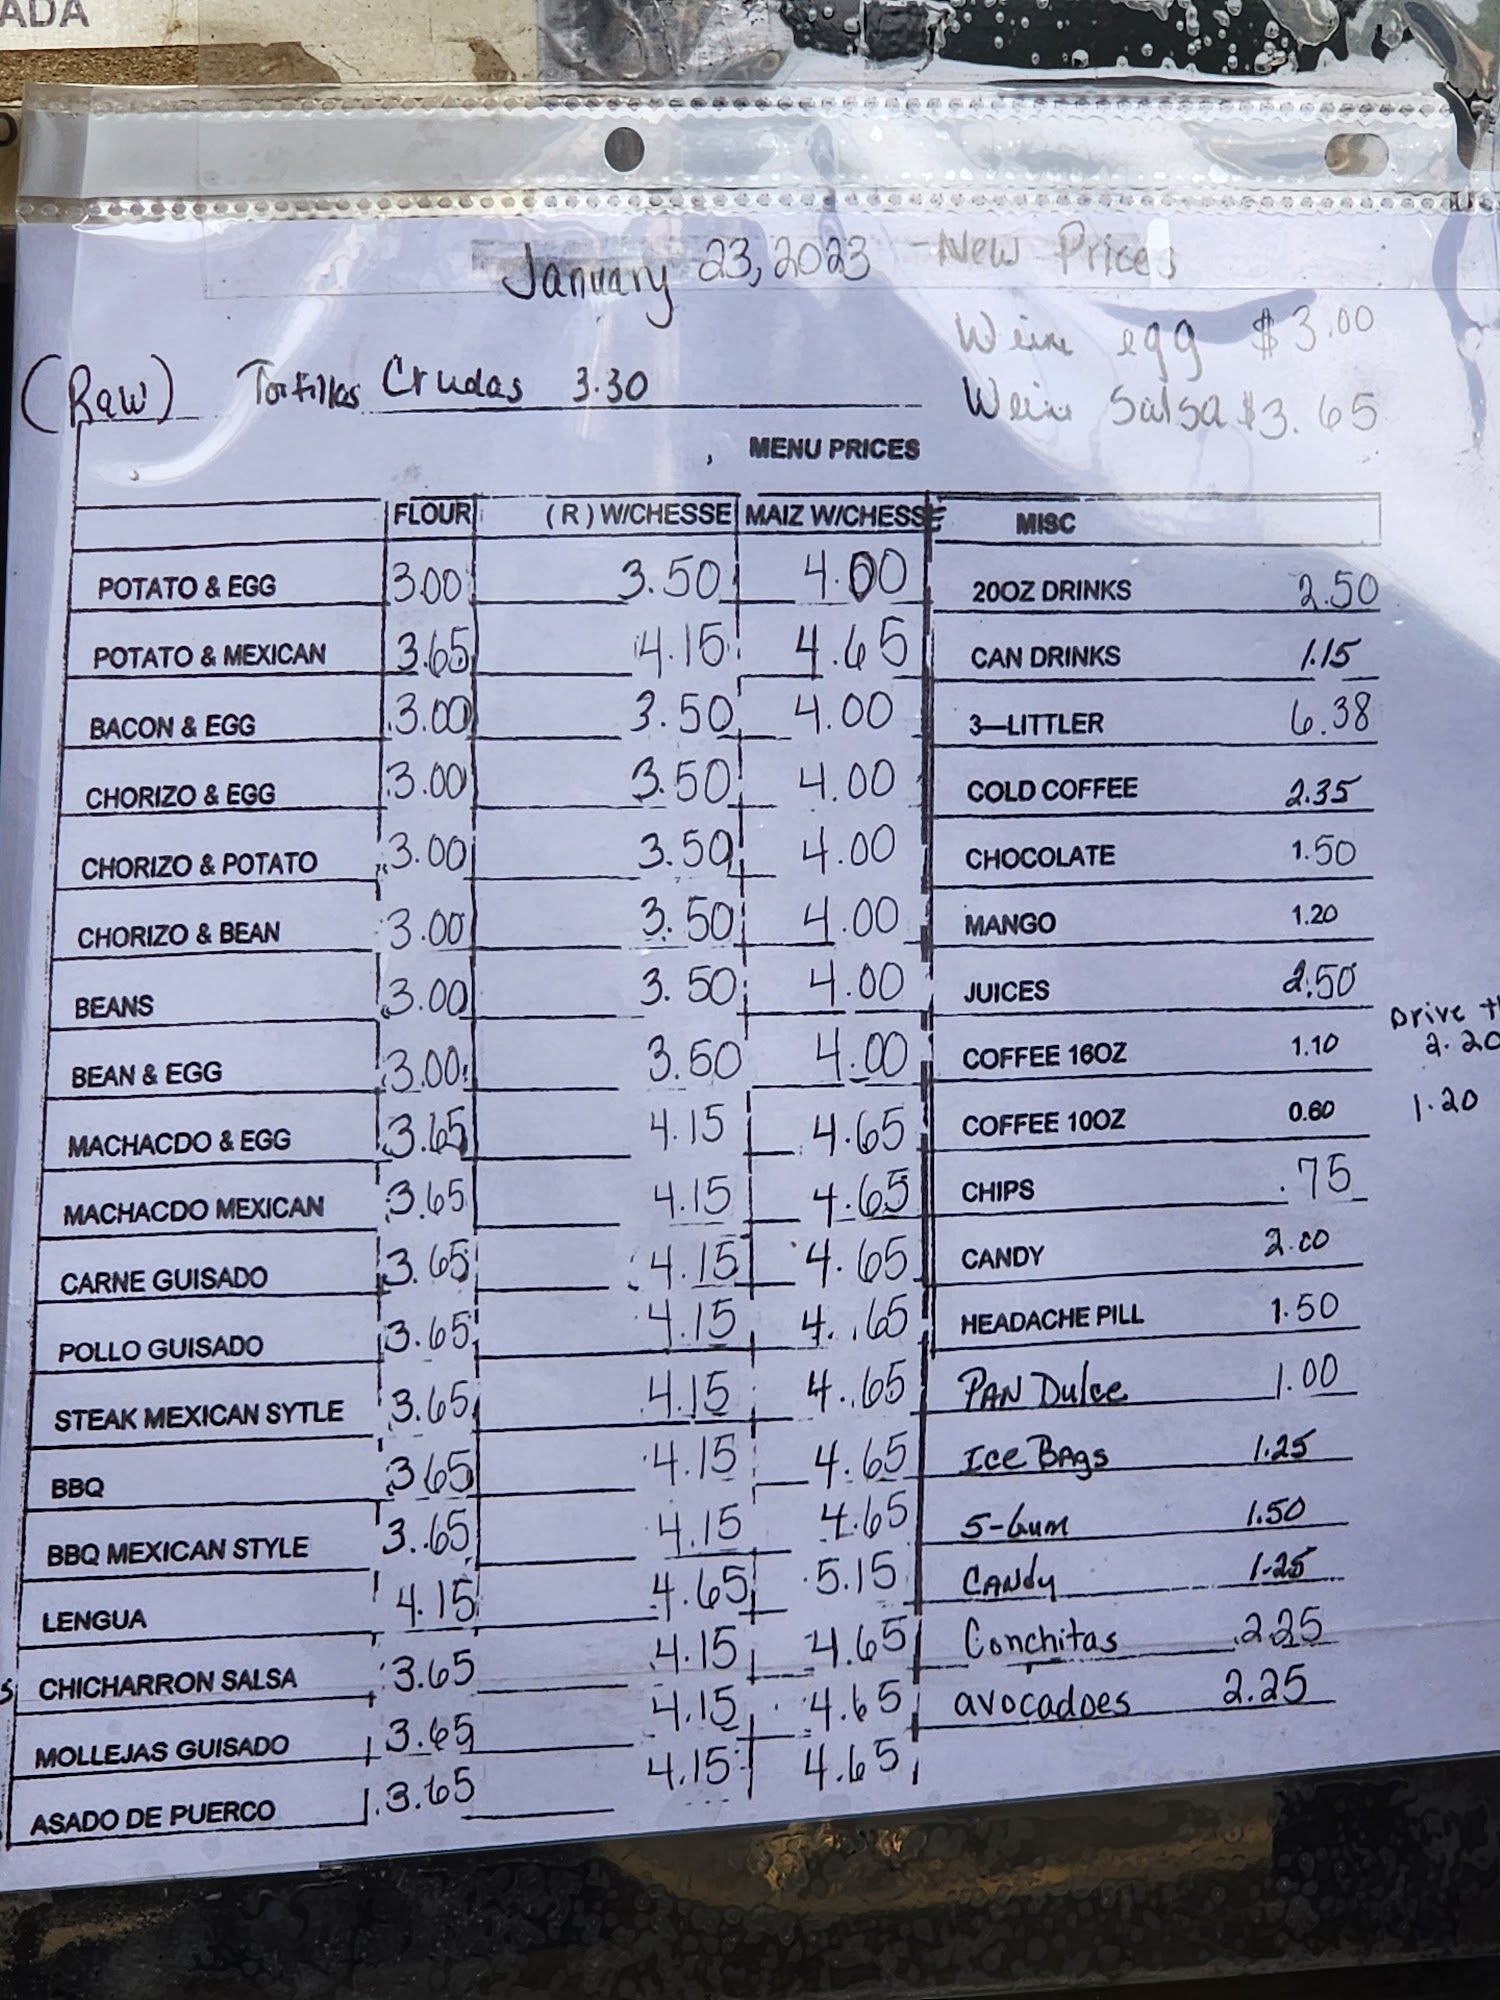 ADA
January 23, 2023 - New Prices
Weine egg $3.00
(Raw) Tortillas Crudas 3.30
Weine Salsa $3.65
MENU PRICES
FLOUR (R) W/CHESSE MAIZ W/CHESSE MISC
POTATO & EGG 3.00 3.50 4.00 20OZ DRINKS 2.50
POTATO & MEXICAN 3.65 4.15 4.65 CAN DRINKS 1.15
BACON & EGG 3.00 3.50 4.00 3—LITTLER 6.38
CHORIZO & EGG 3.00 3.50 4.00 COLD COFFEE 2.35
CHORIZO & POTATO 3.00 3.50 4.00 CHOCOLATE 1.50
CHORIZO & BEAN 3.00 3.50 4.00 MANGO 1.20
BEANS 3.00 3.50 4.00 JUICES 2.50
Drive
BEAN & EGG 3.00 3.50 4.00 COFFEE 16OZ 1.10 2.20
MACHACDO & EGG 3.65 4.15 4.65 COFFEE 10OZ 0.60 1.20
MACHACDO MEXICAN 3.65 4.15 4.65 CHIPS .75
CARNE GUISADO 3.65 4.15 4.65 CANDY 2.00
POLLO GUISADO 3.65 4.15 4.65 HEADACHE PILL 1.50
STEAK MEXICAN SYTLE 3.65 4.15 4.65 PAN Dulce 1.00
BBQ 3.65 4.15 4.65 Ice BAgs 1.25
BBQ MEXICAN STYLE 3.65 4.15 4.65 5-Gum 1.50
LENGUA 4.15 4.65 5.15 CANdy 1.25
CHICHARRON SALSA 3.65 4.15 4.65 Conchitas 2.25
MOLLEJAS GUISADO 3.65 4.15 4.65 avocadoes 2.25
ASADO DE PUERCO 3.65 4.15 4.65